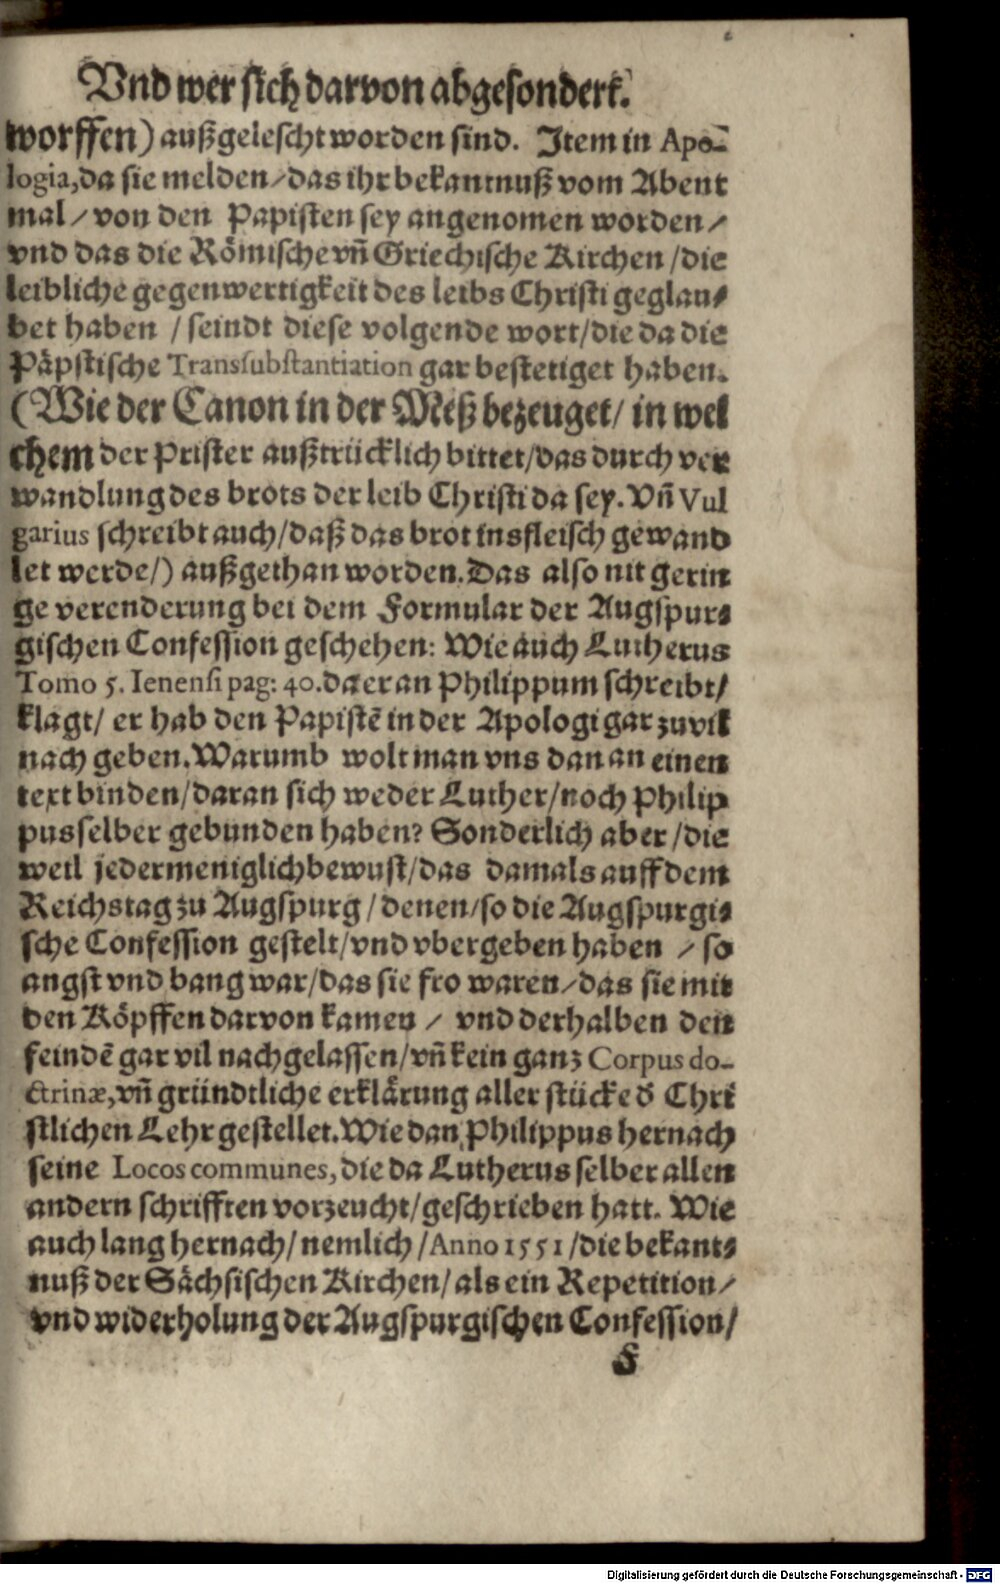 Vnd wer sich darvon abgesondert.
worffen) außgelescht worden sind. Item in Apo-
logia, da sie melden/das ihr bekantnuß vom Abent
mal/von den Papisten sey angenomen worden/
vnd das die Römische vñ Griechische Kirchen/die
leibliche gegenwertigkeit des leibs Christi geglau-
bet haben/seindt diese volgende wort/die da die
Päpstische Transsubstantiation gar bestetiget haben.
(Wie der Canon in der Meß bezeuget/in wel
chem der Prister außtrücklich bittet/das durch ver
wandlung des brots der leib Christi da sey. Vñ Vul
garius schreibt auch/daß das brot ins fleisch gewand
let werde/) außgethan worden. Das also nit gerin
ge verenderung bei dem Formular der Augspur-
gischen Confession geschehen: Wie auch Lutherus
Tomo 5. Ienensi pag: 40. da er an Philippum schreibt/
klagt/er hab den Papistẽ in der Apologi gar zuvil
nach geben. Warumb wolt man vns dan an einen
text binden/daran sich weder Luther/noch Philip
pus selber gebunden haben? Sonderlich aber/die
weil jedermeniglich bewust/das damals auff dem
Reichstag zu Augspurg/denen/so die Augspurgi-
sche Confession gestelt/vnd vbergeben haben/so
angst vnd bang war/das sie fro waren/das sie mit
den Köpffen darvon kamen/vnd derhalben den
feindẽ gar vil nachgelassen/vñ kein ganz Corpus do-
ctrinæ, vñ gründtliche erklärung aller stücke d̃ Chri
stlichen Lehr gestellet. Wie dan Philippus hernach
seine Locos communes, die da Lutherus selber allen
andern schrifften vorzeucht/geschrieben hatt. Wie
auch lang hernach/nemlich/Anno 1551/die bekant-
nuß der Sächsischen Kirchen/als ein Repetition/
vnd widerholung der Augspurgischen Confession/
F
Digitalisierung gefördert durch die Deutsche Forschungsgemeinschaft - DFG